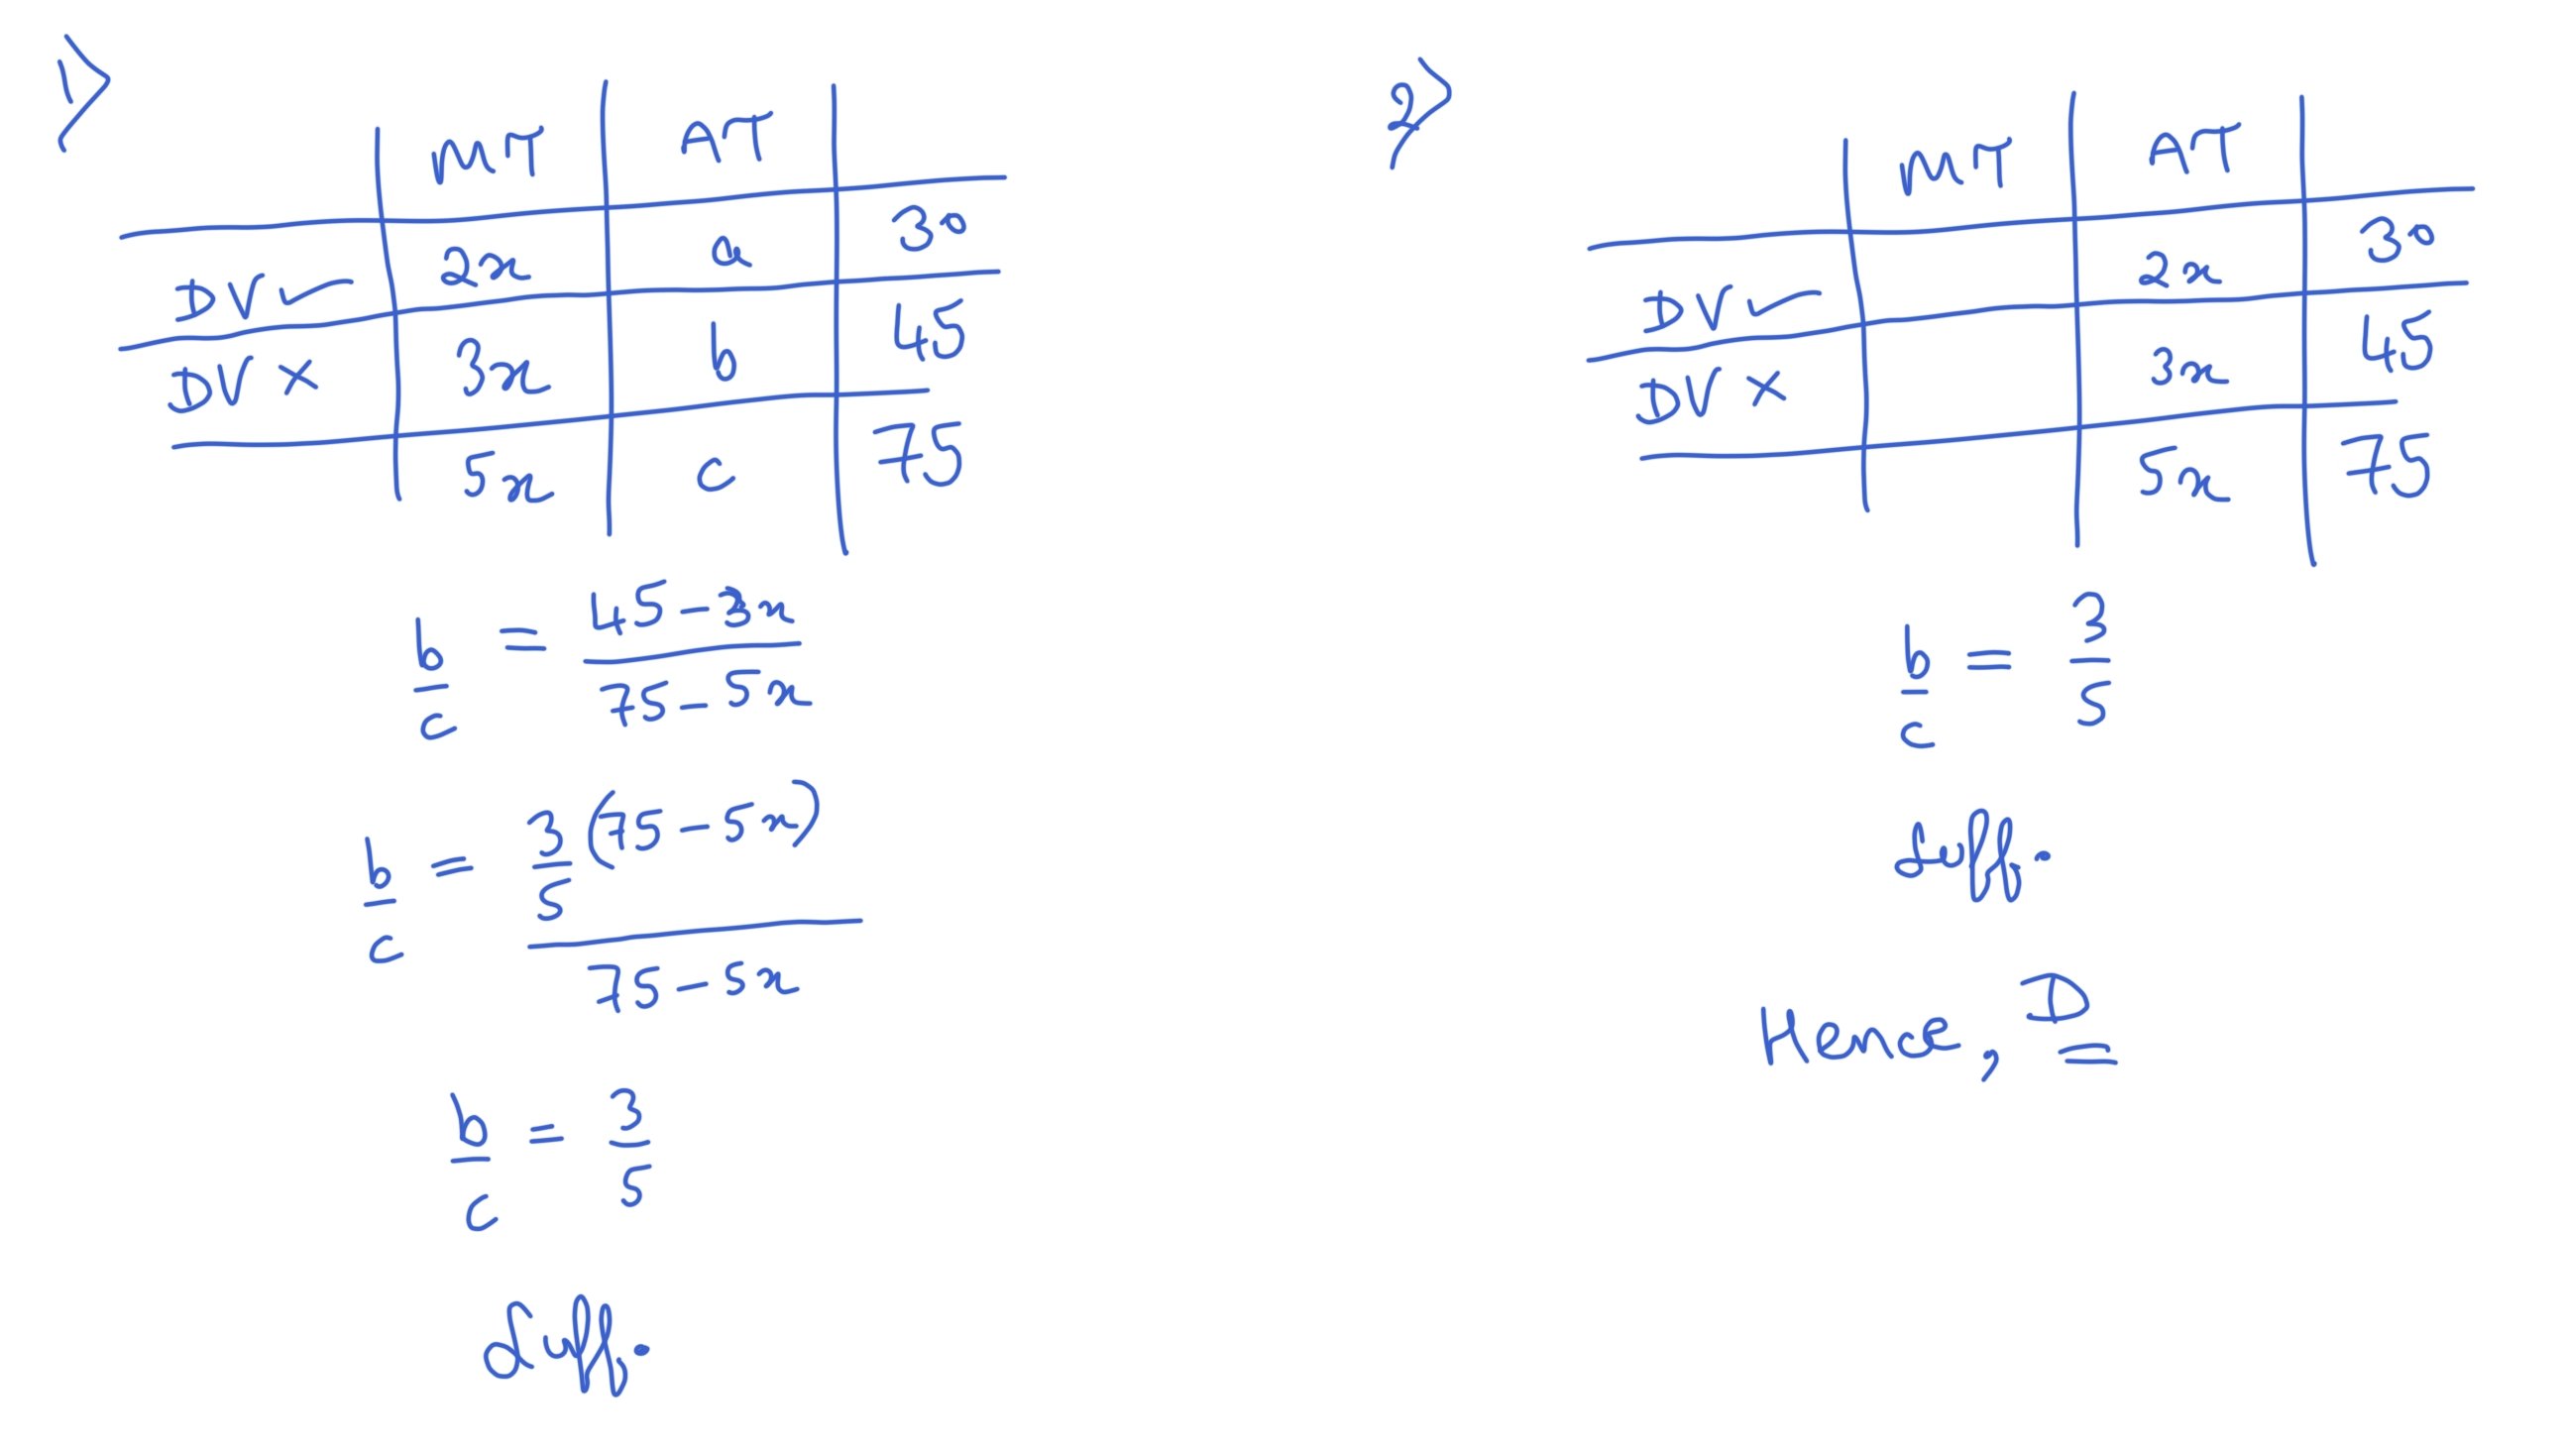 1>
MT AT
DV ✓ 2x a 30
DV × 3x b 45
5x c 75
b/c = (45-3x)/(75-5x)
b/c = 3/5 (75-5x) / (75-5x)
b/c = 3/5
Suff.
2>
MT AT
DV ✓ 2x 30
DV × 3x 45
5x 75
b/c = 3/5
Suff.
Hence, D